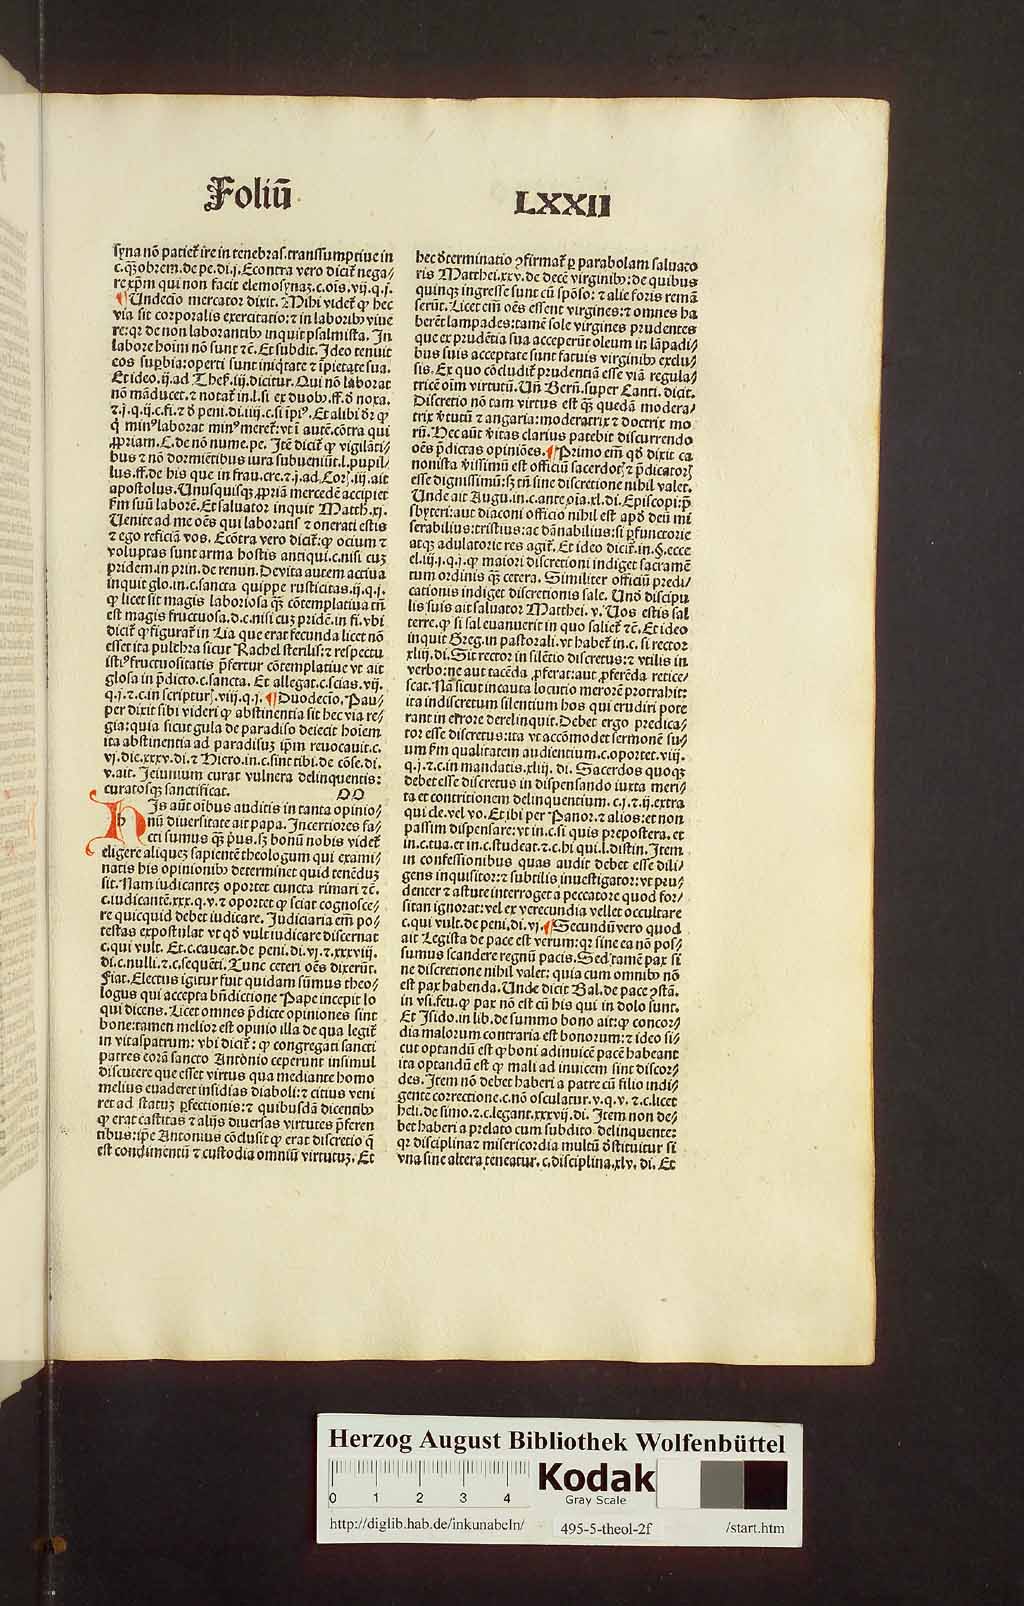 Foliū LXXII
syna nō patiet̄ ire in tenebras. transsumptiue in
c. qȝ obrem. de pe. di. j. Econtra vero dicit̄ nega⸗
re xp̄m qui non facit elemosynaȝ. c. ois. vij. q. j.
¶ Undecīo mercator dixit. Mihi videt̄ ꝙ hec
via sit corporalis exercitatio: ⁊ in laboribꝰ viue
re: qꝛ de non laborantibꝰ inquit psalmista. In
labore hoīm nō sunt ⁊c̄. Et subdit. Ideo tenuit
eos suꝑbia: operti sunt iniq̄tate ⁊ īpietate sua.
Et ideo. ij. ad Thes. iij. dicitur. Qui nō laborat
nō māducet. ⁊ notat̄ in. l. si ex duobꝰ. ff. ꝺ noxa.
⁊. j. q. ij. c. fi. ⁊ ꝺ peni. di. iiij. c. si īpiꝰ. Et alibi ꝺꝛ ꝙ
q̄ minꝰ laborat minꝰ meret̄: vt ī autē. cōtra qui
ꝓpriam. C. de nō nume. pe. Itē dicit̄ ꝙ vigilāti⸗
bus ⁊ nō dormiētibus iura subueniūt. l. pupil⸗
lus. ff. de his que in frau. cre. ⁊. j. ad Coꝝ. iij. ait
apostolus. Unusquisqȝ ꝓpriā mercedē accipiet
ẜm suū laborē. Et saluator inquit Matth. xj.
Uenite ad me oēs qui laboratis ⁊ onerati estis
⁊ ego reficiā vos. Ecōtra vero dicit̄: ꝙ ocium ⁊
voluptas sunt arma hostis antiqui. c. nisi cuȝ
pridem. in prin. de renun. De vita autem actiua
inquit glo. in. c. sancta quippe rusticitas. ij. q. j.
ꝙ licet sit magis laboriosa qȝ cōtemplatiua tn̄
est magis fructuosa. d. c. nisi cuȝ pridē. in fi. vbi
dicit̄ ꝙ figurat̄ in Lia que erat fecunda licet nō
esset ita pulchra sicut Rachel sterilis: ⁊ respectu
istiꝰ fructuositatis p̄fertur cōtemplatiue vt ait
glosa in p̄dicto. c. sancta. Et allegat. c. scias. vij.
q. j. ⁊. c. in scripturꝭ. viij. q. j. ¶ Duodecīo. Pau⸗
per dixit sibi videri ꝙ abstinentia sit hec via re⸗
gia: quia sicut gula de paradiso deiecit hoīem
ita abstinentia ad paradisuȝ ip̄m reuocauit. c.
vj. die. xxxv. di. ⁊ Hiero. in. c. sint tibi. de cōse. di.
v. ait. Jeiunium curat vulnera delinquentis:
curatosqȝ sanctificat.
His aūt oībus auditis in tanta opinio⸗
nū diuersitate ait papa. Incertiores fa⸗
cti sumus qȝ pꝰus. sȝ bonū nobis videt̄
eligere aliqueȝ sapientē theologum qui exami⸗
natis his opinionibꝰ determinet quid tenēduȝ
sit. Nam iudicanteȝ oportet cuncta rimari ⁊c̄.
c. iudicantē. xxx. q. v. ⁊ oportet ꝙ sciat cognosce⸗
re quicquid debet iudicare. Judiciaria em̄ po⸗
testas expostulat vt qꝺ vult iudicare discernat
c. qui vult. Et. c. caueat. de peni. di. vj. ⁊. xxxviij.
di. c. nulli. ⁊. c. sequēti. Tunc ceteri oēs dixerūt.
Fiat. Electus igitur fuit quidam sūmus theo⸗
logus qui accepta bn̄dictione Pape incepit lo
qui dicens. Licet omnes p̄dicte opiniones sint
bone: tamen melior est opinio illa de qua legit̄
in vitaspatrum: vbi dicit̄: ꝙ congregati sancti
patres corā sancto Antonio ceperunt insimul
discutere que esset virtus qua mediante homo
melius euaderet insidias diaboli: ⁊ citius veni
ret ad statuȝ ꝑfectionis: ⁊ quibusdā dicentibꝰ
ꝙ erat castitas ⁊ alijs diuersas virtutes p̄feren
tibus: ip̄e Antonius cōclusit ꝙ erat discretio q̄
est condimentū ⁊ custodia omniū virtutuȝ. Et
hec ꝺterminatio ꝯfirmat̄ ꝑ parabolam saluato
ris Matthei. xxv. de decē virginibꝰ: de quibus
quinqȝ ingresse sunt cū spōso: ⁊ alie foris remā
serūt. Licet em̄ oēs essent virgines: ⁊ omnes ha
berēt lampades: tamē sole virgines prudentes
que ex prudētia sua acceperūt oleum in lāpadi⸗
bus suis acceptate sunt fatuis virginibꝰ exclu⸗
sis. Ex quo cōcludit̄ prudentiā esse viā regula⸗
tricē oīm virtutū. Un̄ Bern̄. super Canti. dicit.
Discretio nō tam virtus est qȝ quedā modera⸗
trix v̄tutū ⁊ angaria: moderatrix ⁊ doctrix mo
rū. Hec aūt v̄itas clarius patebit discurrendo
oēs p̄dictas opiniōes. ¶ Primo em̄ qꝺ dixit ca
nonista v̄issimū est officiū sacerdoꝶ ⁊ p̄dicatoꝝ
esse dignissimū: sȝ tn̄ sine discretione nihil valet.
Unde ait Augu. in. c. ante oīa. xl. di. Episcopi: p̄
sbyteri: aut diaconi officio nihil est apꝺ deū mi
serabilius: tristius: ac dānabilius: si ꝑfunctorie
atqȝ adulatorie res agit̄. Et ideo dicit̄. in. §. ecce
el. iij. j. q. j. ꝙ maiori discretioni indiget sacramē
tum ordinis qȝ cetera. Similiter officiū predi⸗
cationis indiget discretionis sale. Unꝺ discipu
lis suis ait saluator Matthei. v. Uos estis sal
terre. ꝙ si sal euanuerit in quo saliet̄ ⁊c̄. Et ideo
inquit Greg. in pastorali. vt habet̄ in. c. si rector
xliij. di. Sit rector in silētio discretus: ⁊ vtilis in
verbo: ne aut tacēda ꝓferat: aut ꝓferēda retice⸗
scat. Nā sicut incauta locutio merorē protrahit:
ita indiscretum silentium hos qui erudiri pote
rant in errore derelinquit. Debet ergo predica⸗
tor esse discretus: ita vt accōmodet sermonē su⸗
um ẜm qualitatem audientium. c. oportet. viij.
q. j. ⁊. c. in mandatis. xliij. di. Sacerdos quoqȝ
debet esse discretus in dispensando iuxta meri⸗
ta et contritionem delinquentium. c. j. ⁊. ij. extra
qui de. vel vo. Et ibi per Panor. ⁊ alios: et non
passim dispensare: vt in. c. si quis prepostera. et
in. c. tua. et in. c. studeat. ⁊. c. hi qui. l. distin. Item
in confessionibus quas audit debet esse dili⸗
gens inquisitor: ⁊ subtilis inuestigator: vt pru⸗
denter ⁊ astute interroget a peccatore quod for⸗
sitan ignorat: vel ex verecundia vellet occultare
c. qui vult. de peni. di. vj. ¶ Secundū vero quod
ait Legista de pace est verum: qꝛ sine ea nō pos⸗
sumus scandere regnū pacis. Sed tamē pax si
ne discretione nihil valet: quia cum omnibꝰ nō
est pax habenda. Unde dicit Bal. de pace ꝯstā.
in vsi. feu. ꝙ pax nō est cū his qui in dolo sunt.
Et Isido. in lib. de summo bono ait: ꝙ concor⸗
dia malorum contraria est bonorum: ⁊ ideo si⸗
cut optandū est ꝙ boni adinuicē pacē habeant
ita optandū est ꝙ mali ad inuicem sint discor⸗
des. Item nō debet haberi a patre cū filio indi⸗
gente correctione. c. nō osculatur. v. q. v. ⁊. c. licet
heli. de simo. ⁊. c. legant. xxxvij. di. Item non de⸗
bet haberi a prelato cum subdito delinquente:
qꝛ disciplinaȝ misericordia multū ꝺstituitur si
vna sine altera teneatur. c. disciplina. xlv. di. Et
Herzog August Bibliothek Wolfenbüttel
0 1 2 3 4
Kodak
Gray Scale
http://diglib.hab.de/inkunabeln/ 495-5-theol-2f /start.htm